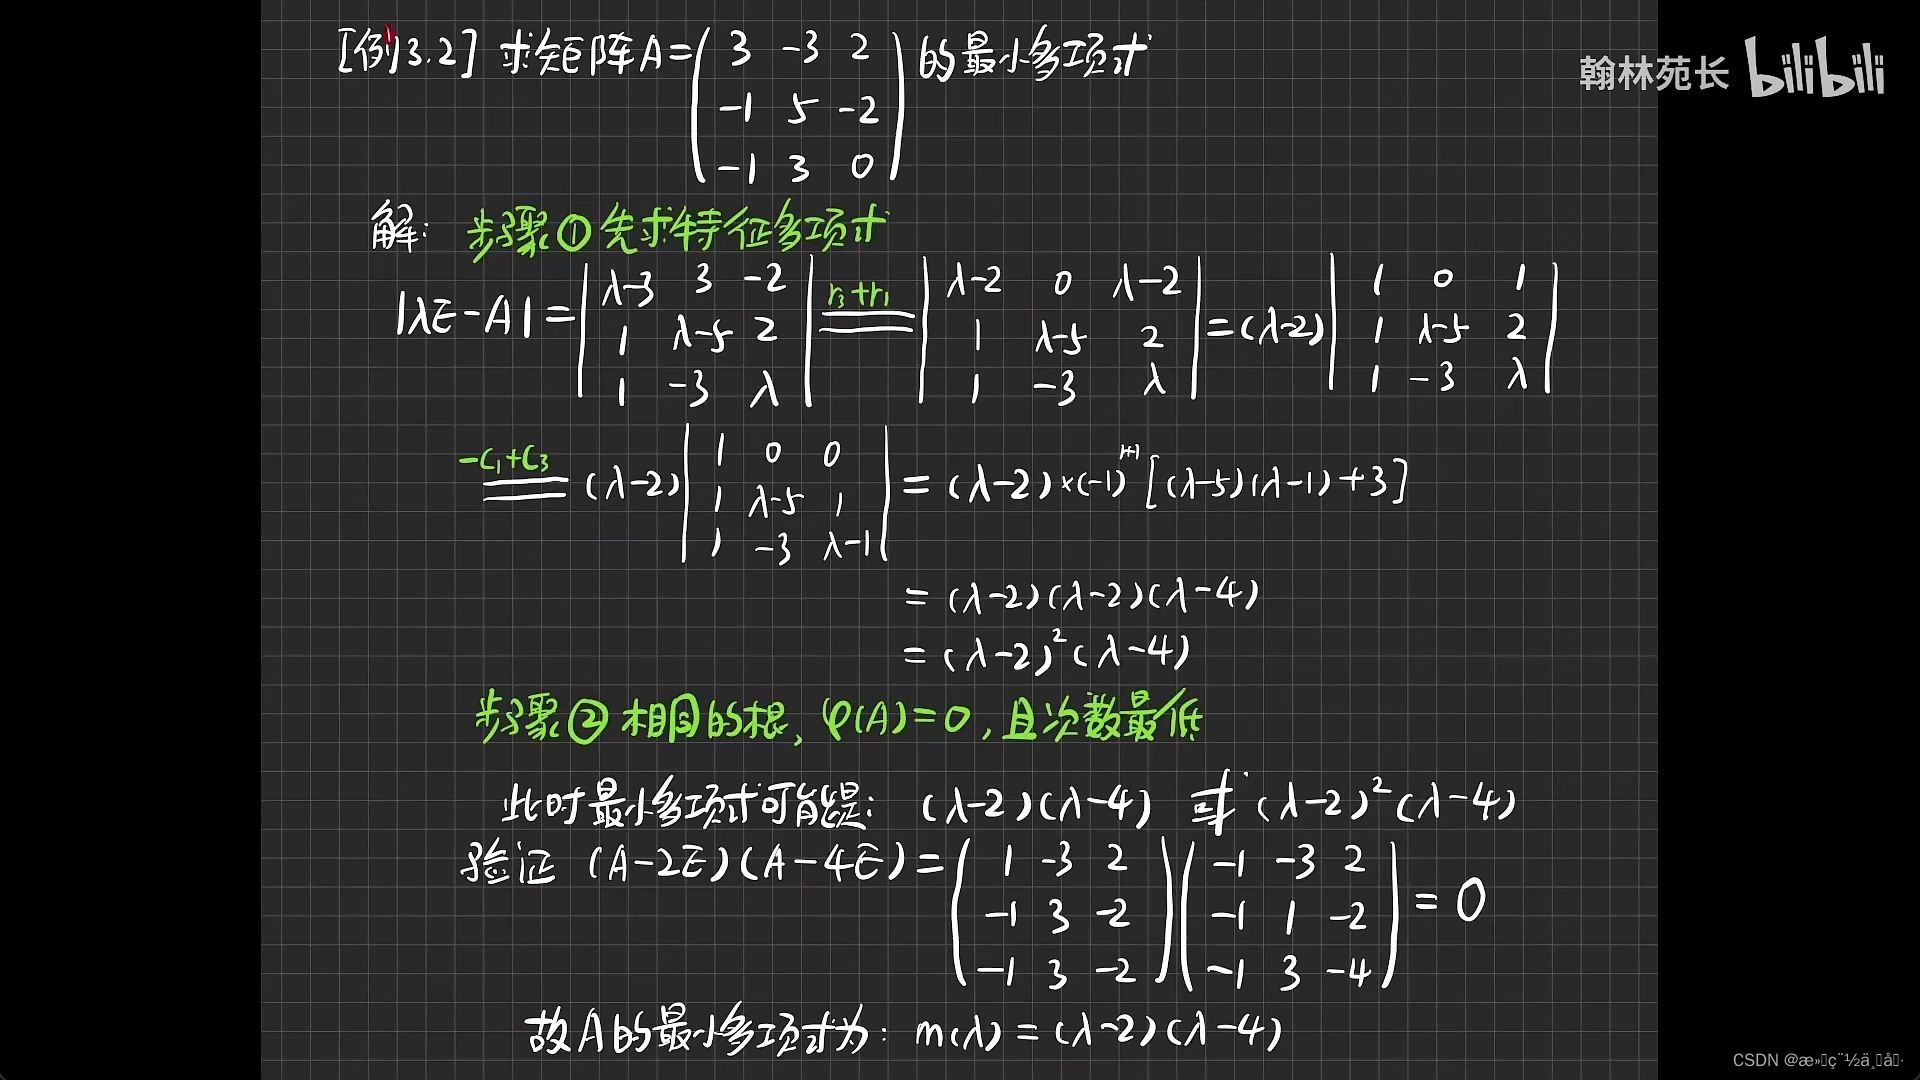 [例3.2] 求矩阵A=(3 -3 2 的最小多项式
-1 5 -2
-1 3 0)
翰林苑长 bilibili
解: 步骤① 先求特征多项式
|λE-A| = |λ-3 3 -2; 1 λ-5 2; 1 -3 λ| r₃+r₁ = |λ-2 0 λ-2; 1 λ-5 2; 1 -3 λ| = (λ-2)|1 0 1; 1 λ-5 2; 1 -3 λ|
-C₁+C₃ = (λ-2)|1 0 0; 1 λ-5 1; 1 -3 λ-1| = (λ-2)×(-1)¹⁺¹[(λ-5)(λ-1)+3]
= (λ-2)(λ-2)(λ-4)
= (λ-2)²(λ-4)
步骤② 相同的根, φ(A)=0, 且次数最低
此时最小多项式可能是: (λ-2)(λ-4) 或 (λ-2)²(λ-4)
验证 (A-2E)(A-4E) = (1 -3 2; -1 3 -2; -1 3 -2)(-1 -3 2; -1 1 -2; -1 3 -4) = 0
故A的最小多项式为: m(λ) = (λ-2)(λ-4)
CSDN